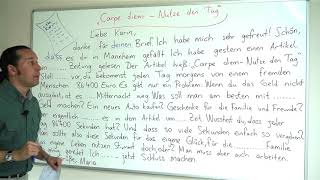 "Carpe diem - Nutze den Tag"
Liebe Karin,
danke für deinen Brief. Ich habe mich sehr gefreut! Schön,
dass es dir in Mannheim gefällt. Ich habe gestern einen Artikel
Zeitung gelesen. Der Artikel hieß „Carpe diem - Nutze den Tag".
Stell ..... vor, du bekommst jeden Tag morgens von einem fremden
86400 Euro. Es gibt nur ein Problem: Wenn du das Geld nicht
ist es ..... Mitternacht weg. Was soll man am besten mit
Geld machen? Ein neues Auto kaufen? Geschenke für die Familie und Freunde?
eigentlich ..... in dem Artikel um ..... Zeit. Wusstest du, dass jeder
86400 Sekunden hat? Und dass so viele Sekunden einfach so vergehen?
sollte also diese Sekunden für das eigene Glück, für die ..... Familie
eigene Leben nutzen. Stimmt doch, oder? Man muss aber auch arbeiten.
geredet. Ich ..... jetzt Schluss machen.
Mario